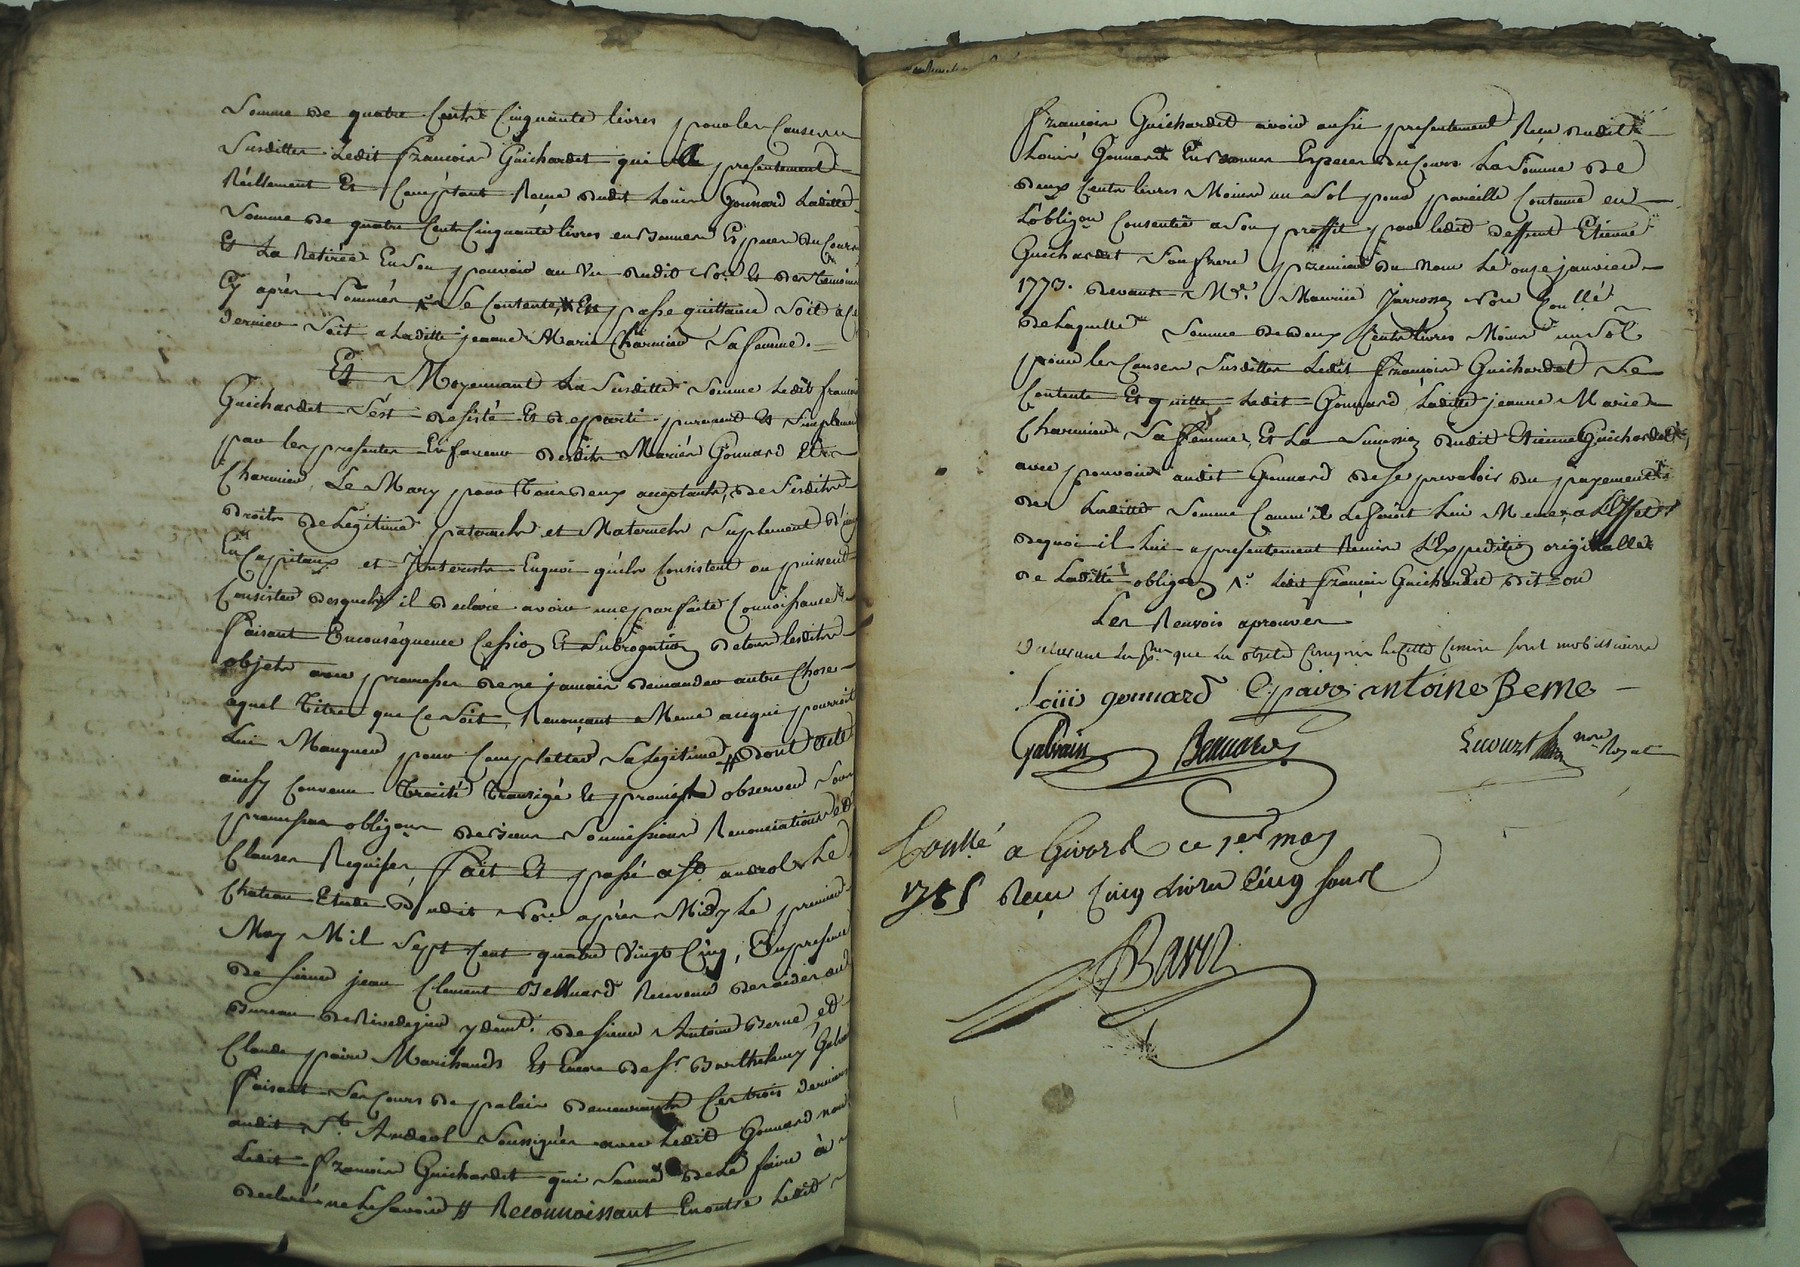 Somme de quatre Cents Cinquante livres pour les Causes
Susdittes Ledit François Guichardet qui a presentement
Réellement Et Comptant Reçue dudit Louis Gonnard Laditte
Somme de quatre Cent Cinquante livres en Bonnes Especes du Cours
Et La Retirée En Son pouvoir au Vu dudit Nore. Et des Temoins
Cy après Nommés Se Contente, Et passe quittance Soit à Ce
dernier Soit a Laditte jeanne Marie Charmier Sa femme.
Et Moyennant La Susditte Somme Ledit françois
Guichardet S'ést desisté Et departi purement Et Simplement
par les presentes En faveur desdits Mariés Gonnard Et
Charmier, Le Mary pour Tous deux acceptants, de Sesdits
droits de Légitime paternels et Maternels Suplement d'iceux
En Capitaux et Interests Enquoi qu'ils Consistent ou puissent
Consister desquels il declare avoir une parfaite Connoissance
Faisant Enconséquence Cession Et Subrogation de tous Lesdits
objets avec promesse de ne jamais demander autre Chose
aquel Titre que Ce Soit, Renonçant Meme acequi pourroit
Lui Manquer pour Completter Sa légitime # dont acte
ainsy Convenu Traité Transigé Et promis observer Sous
promesses obligons. de Biens Soumissions Renonciations et
Clauses Requises Fait Et passé a St. andeol Le
Chateau Etude dudit Nore. après Midy Le premier
May Mil Sept Cent quatre Vingt Cinq, En presence
de Sieur jean Clement Bernard Receveur des aides au
Bureau de Rivedegier y demt. de Sieur Antoine Berne et
Claude paire Marchands Et Encore de Sr. Barthelemy Galvain
Faisant Ses Cours de palais demeurants Ces trois derniers
audit St. Andeol Soussignés avec Ledit Gonnard non
Ledit François Guichardet qui Sommé de Le faire à
declaré ne Le Savoir # Reconnoissant En outre Ledit
François Guichardet avoir aussi presentement Reçu dudit
Louis Gonnard En Bonnes Especes du Cours La Somme de
deux Cents livres Moins un Sol pour pareille Contenue en
L'obligon. Consentie a Son proffit par ledit deffunt Etienne
Guichardet Son frere premier du Nom Le onze janvier
1773. devant Me. Maurice Jarrosson Nore Conllé
de Laquelle Somme de deux Cents livres Moins un Sol
pour les Causes Susdittes Ledit François Guichardet Se
Contente Et quitte Ledit Gonnard, Laditte jeanne Marie
Charmier Sa femme, Et La Succession dudit Etienne Guichardet,
avec pouvoir audit Gonnard de Se prevaloir du payement
de Laditte Somme Comm'il Le feroit Lui Meme, a L'Effet
dequoi il Lui a presentement Remis L'Expedition originalle
de Laditte obligon Ledit François Guichardet dit on
Les Renvois aprouvés
Declarant les Ptes. que les objets Compris En Cette Cession sont mobilliaires
Loüis gonnard C paire antoine Berne
Galvain Bernard nore Royal
Conllé a Givors ce 1er may
1785 Reçu Cinq Livres Cinq Sous